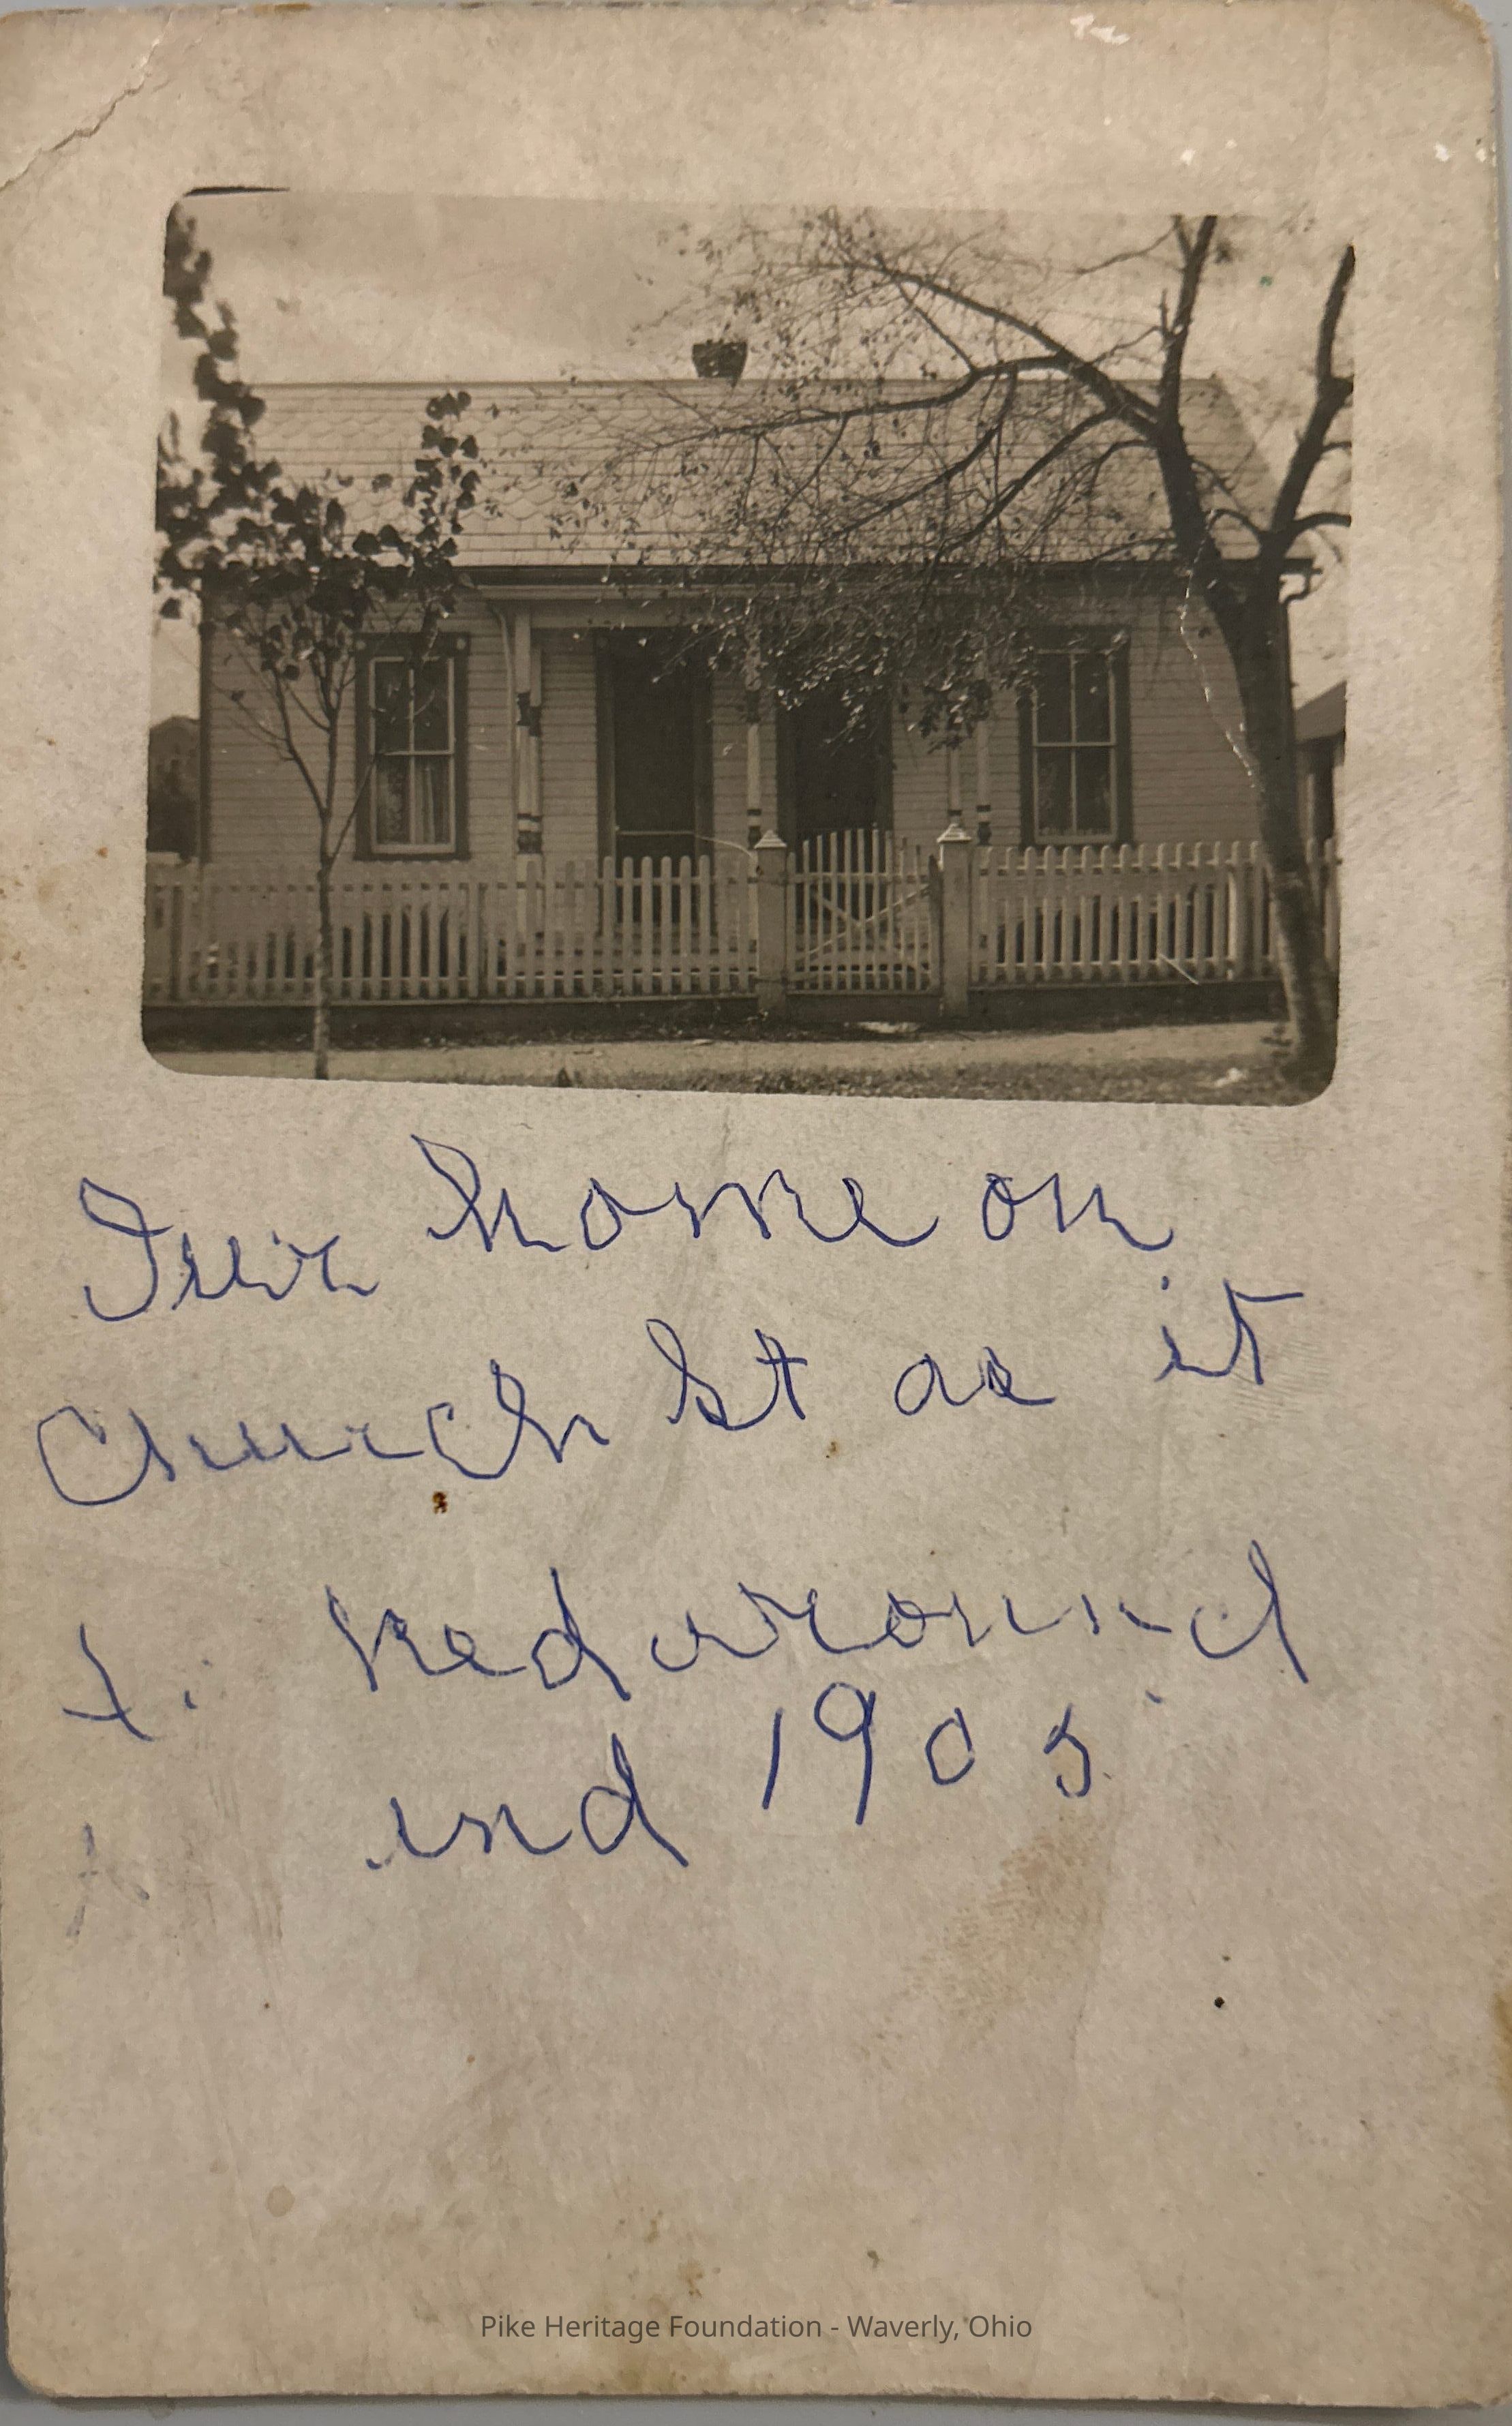 home on
Church St as it
around
1905
Pike Heritage Foundation - Waverly, Ohio